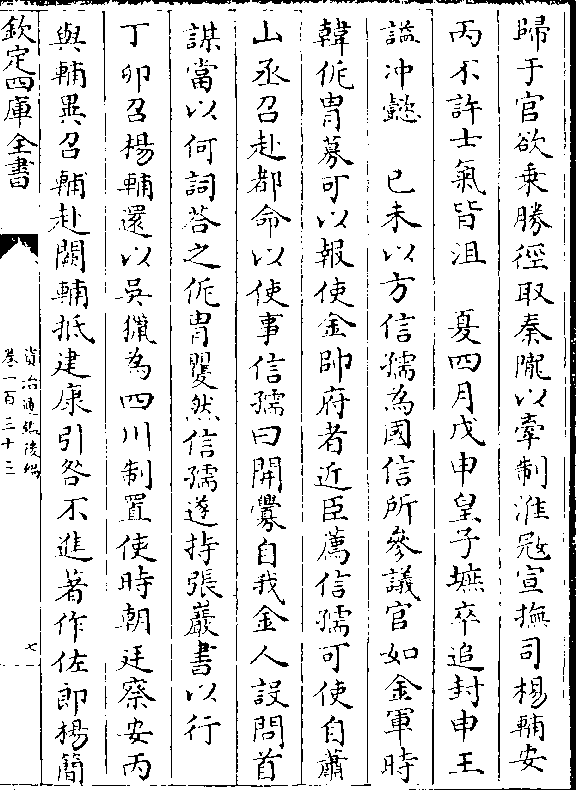 歸于官欲乗勝徑取秦隴以牽制淮冦宣撫司楊輔安
丙不許士氣皆沮　夏四月戊申皇子墲卒追封申王
諡冲懿　己未以方信孺為國信所參議官如金軍時
韓侂胄募可以報使金帥府者近臣薦信孺可使自蕭
山丞召赴都命以使事信孺曰開釁自我金人設問首
謀當以何詞荅之侂胄矍然信孺遂持張巖書以行
丁卯召楊輔還以吳獵為四川制置使時朝廷察安丙
與輔異召輔赴闕輔抵建康引咎不進著作佐郎楊簡
欽定四庫全書
資治通鑑後編
卷一百三十三
七